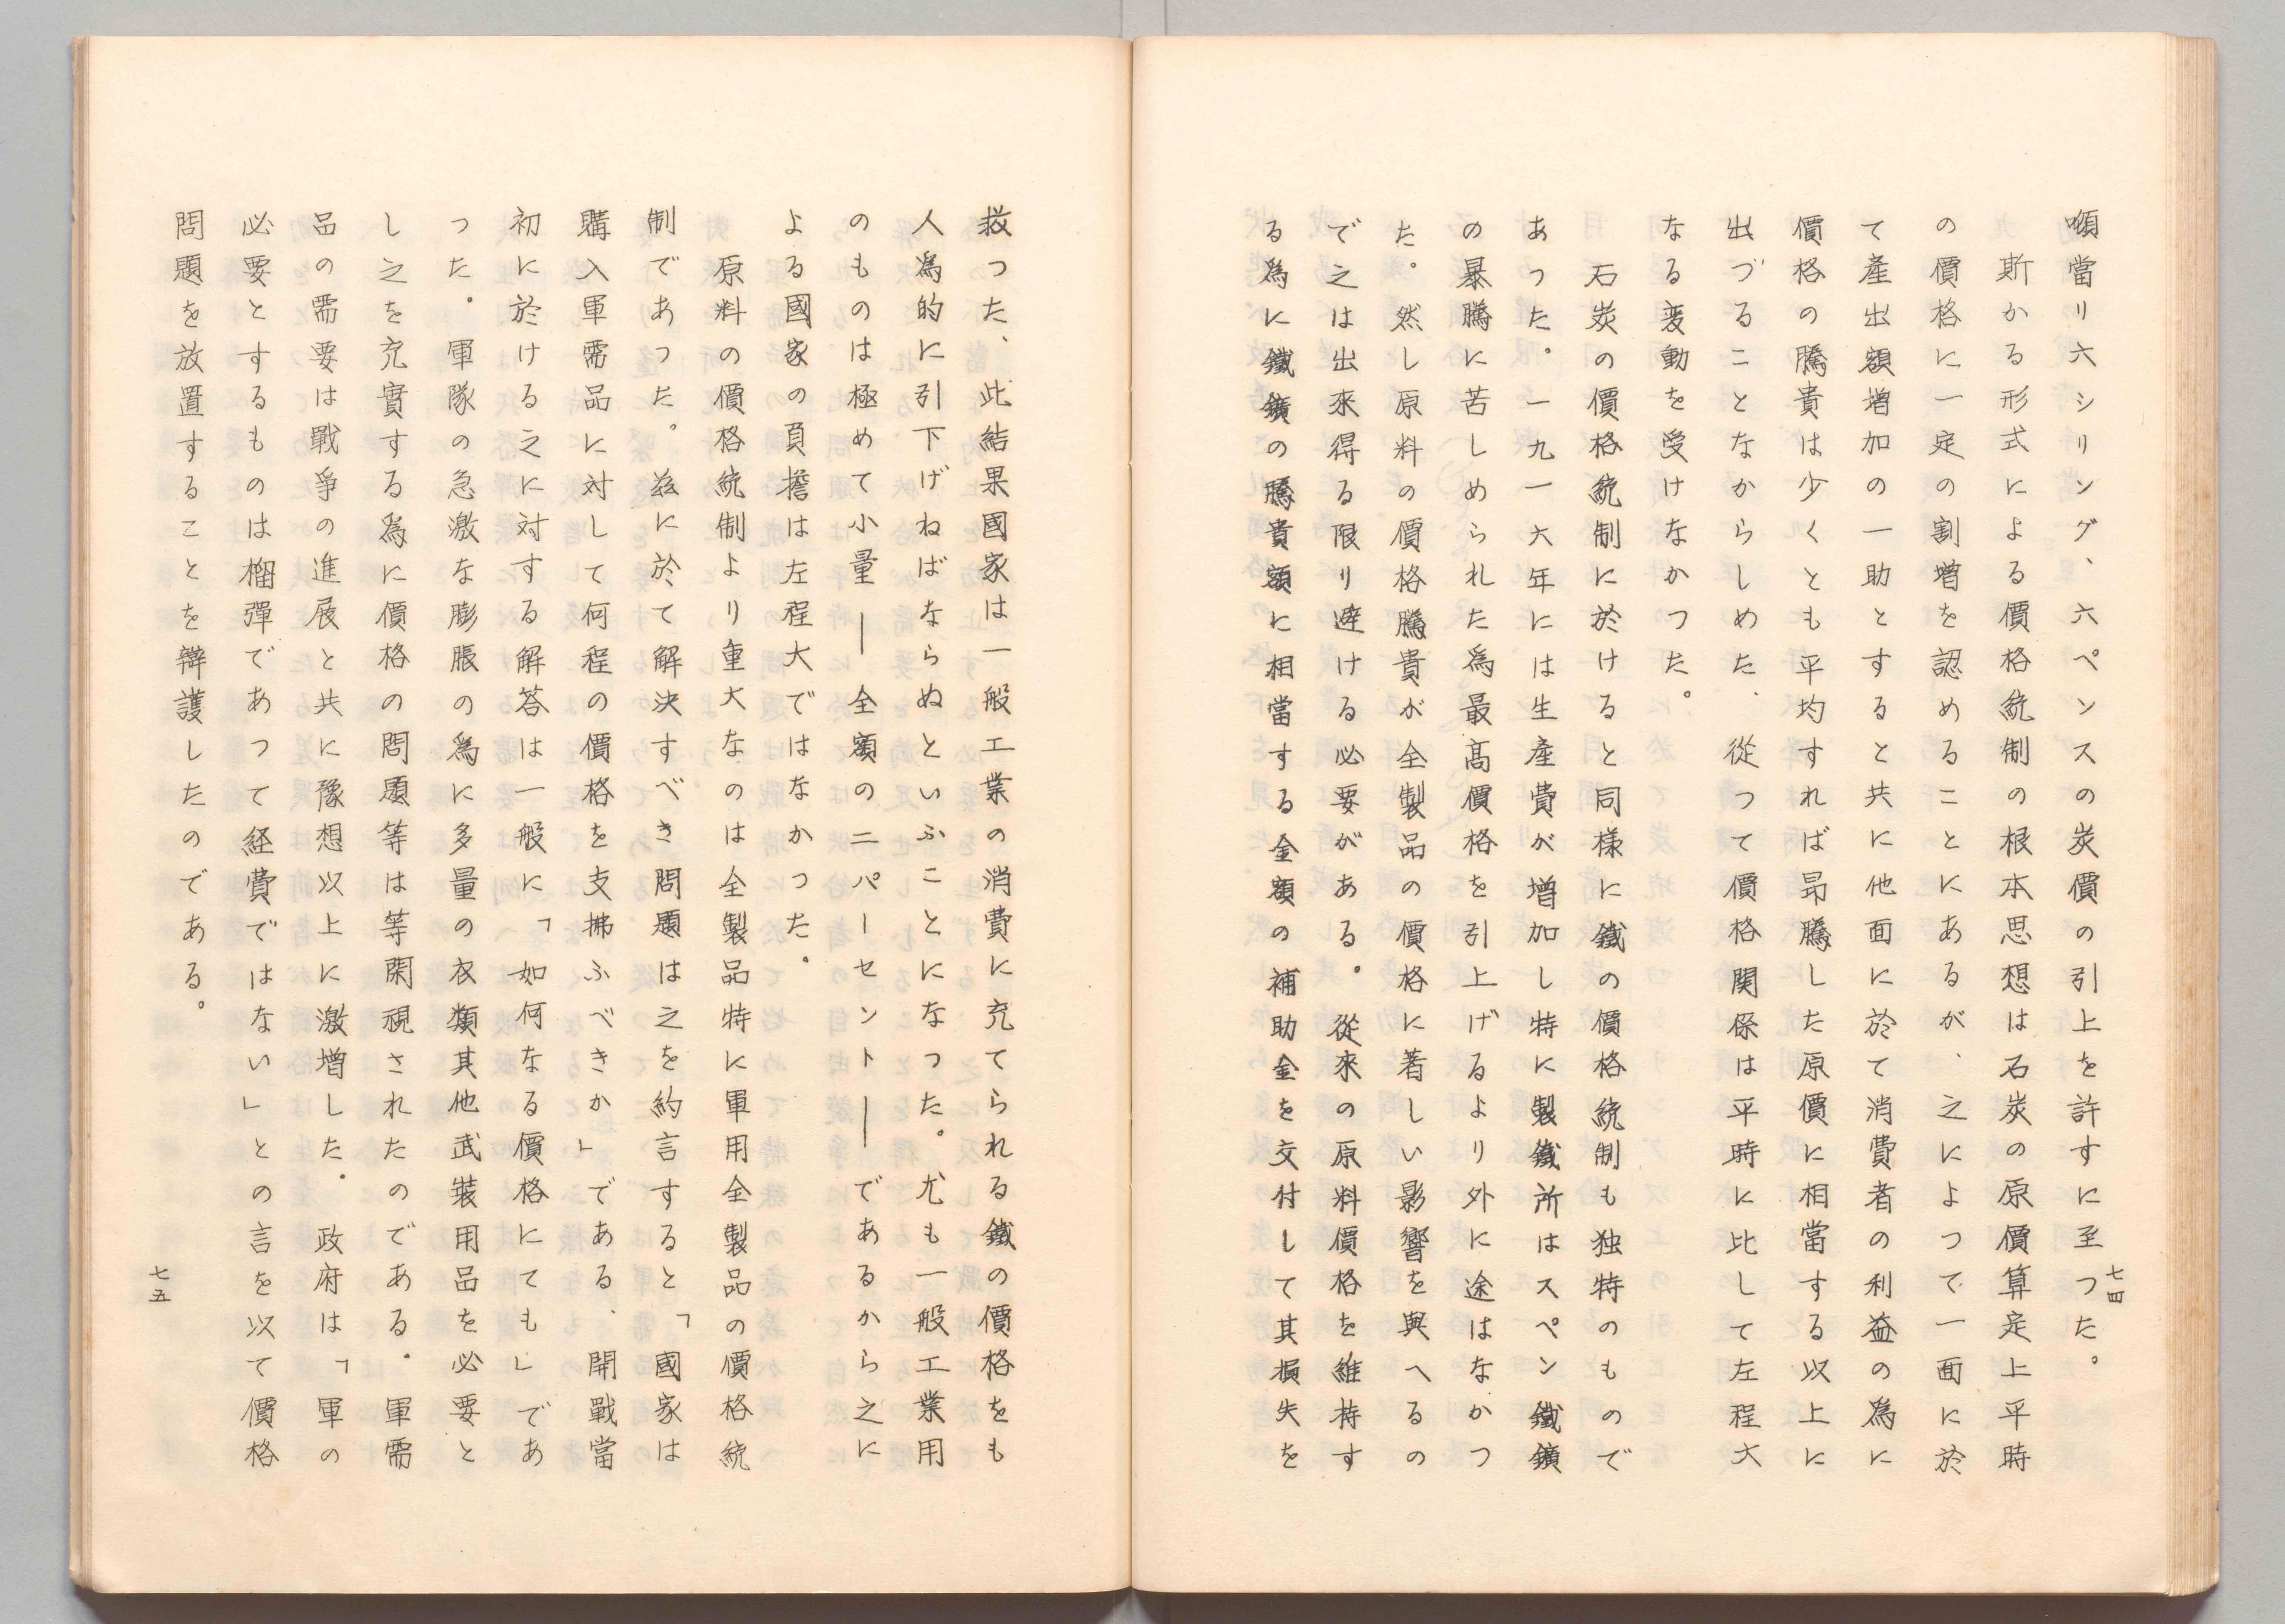 噸當リ六シリング、六ペンスの炭價の引上を許すに至つた。
斯かる形式による價格統制の根本思想は石炭の原價算定上平時
の價格に一定の割增を認めることにあるが、之によつて一面に於
て產出額增加の一助とすると共に他面に於て消費者の利益の爲に
價格の騰貴は少くとも平均すれば昂騰した原價に相當する以上に
出づることなからしめた、從つて價格関係は平時に比して左程大
なる変動を受けなかつた。
石炭の價格統制に於けると同様に鐵の價格統制も独特のもので
あつた。一九一六年には生產費が增加し特に製鐵所はスペン鐵鑛
の暴騰に苦しめられた爲最高價格を引上げるより外に途はなかつ
た。然し原料の價格騰貴が全製品の價格に著しい影響を與へるの
で之は出來得る限り避ける必要がある。從來の原料價格を維持す
る爲に鐵鑛の騰貴額に相當する金額の補助金を交付して其損失を
七四
救つた、此結果國家は一般工業の消費に充てられる鐵の價格をも
人爲的に引下げねばならぬといふことになつた。尤も一般工業用
のものは極めて小量――全額の二パーセント――であるから之に
よる國家の負擔は左程大ではなかつた。
原料の價格統制より重大なのは全製品特に軍用全製品の價格統
制であつた。茲に於て解決すべき問題は之を約言すると「國家は
購入軍需品に対して何程の價格を支拂ふべきか」である、開戰當
初に於ける之に対する解答は一般に「如何なる價格にても」であ
つた。軍隊の急激な膨脹の爲に多量の衣類其他武裝用品を必要と
し之を充實する爲に價格の問題等は等閑視されたのである。軍需
品の需要は戰爭の進展と共に豫想以上に激增した。政府は「軍の
必要とするものは榴彈であつて経費ではない」との言を以て價格
問題を放置することを辯護したのである。
七五